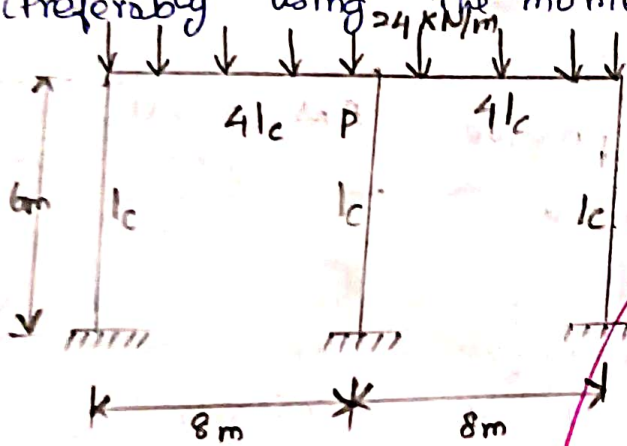 (Preferably using the mome
24 kN/m
4Ic P 4Ic
6m Ic Ic Ic
8m 8m